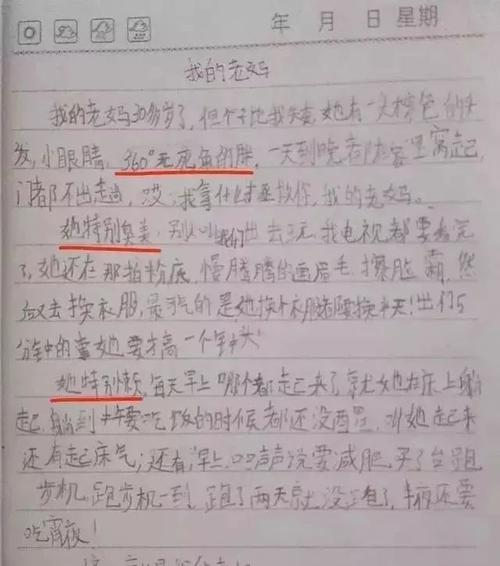 年 月 日 星期
我的老妈
我的老妈30多岁了，但个子比我矮，她有一头棕色的头
发，小眼睛，360°无死角的胖，一天到晚都在家里窝起，
门都不出一趟，哎，我拿什么拯救你，我的老妈。
她特别臭美，别人叫我们出去玩，我电视都要看完
了，她还在那拍粉底，慢腾腾的画眉毛，擦脸霜，然
后又去换衣服，最气的是她换个衣服都要换半天！出门5
分钟的事她要搞一个钟头！
她特别懒，每天早上哪个都起来了就她在床上躺
起，躺到中午要吃饭的时候都还没醒，叫她起来
还有起床气；还有早上口口声声说要减肥，买了台跑
步机，跑步机一到，跑了两天就没跑了，半夜还要
吃宵夜！